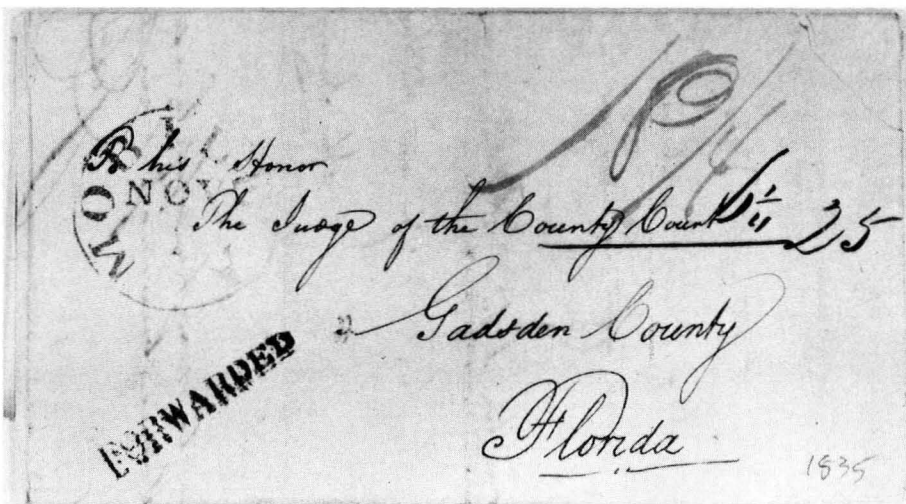 MOBIL
NOV
his Honor
The Judge of the County Court 25
Gadsden County
Florida
FORWARDED
1835